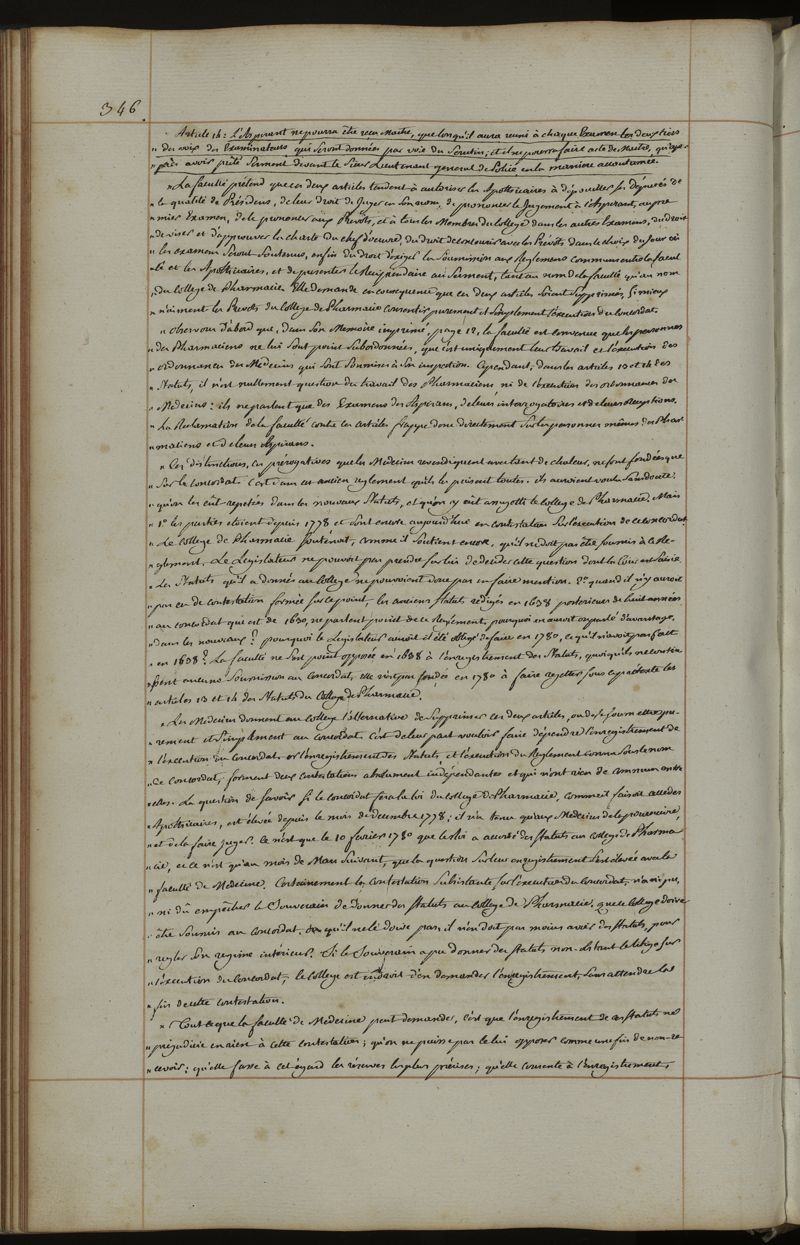 346.
Article 14: L'Aspirant ne pourra être reçu Maitre, que lorsqu'il aura reuni à chaque Examen les deux tiers
" des voix des Examinateurs qui seront données par voie du Scrutin; et il ne pourra faire acte de Maitre, qu'apr-
" près avoir prêté Serment devant le Sieur Lieutenant general de Police en la maniere accoutumée.
" La faculté prétend que ces deux articles tendent à autoriser les Apothicaires à dépouiller ses députés de
" la qualité de Présidens, de leur droit de Juger en son nom, de prononcer le Jugement à l'Aspirant, au pre
" mier Examen, de le prononcer aux Prevôts, et à tous les Membres du College dans les autres Examens, du droit
" de viser et d'approuver la charte du chef d'oeuvre, du droit de concourir avec les Prévôts dans le choix du Jour où
" les examens seront Soutenus, enfin du droit d'exiger la Soumission aux Reglemens communs entre la facul
" té et les Apothicaires, et de presenter le Recipiendaire au Serment, tant au nom de la faculté qu'au nom
" du College de Pharmacie. Elle demande en consequence que ces deux articles soient Supprimés, si mieux
" n'aiment les Prevots du College de Pharmacie consentir purement et simplement l'execution du Concordat.
" observons d'abord que, dans son Memoire imprimé, page 12, la faculté est convenue que les personnes
" des Pharmaciens ne lui sont point Subordonnées, que c'est uniquement leur travail et l'execution des
" ordonnances des Medecins qui sont soumises à son inspection. Cependant, dans les articles 13 et 14 des
" Statuts, il n'est nullement question du travail des Pharmaciens ni de l'execution des ordonnances des
" Medecins: ils ne parlent que des Examens des Aspirans, de leurs interrogatoires et de leurs receptions.
" La Reclamation de la faculté contre ces articles frappe donc directement sur les personnes mêmes des Phar
" maciens et de leurs Aspirans.
" Ces distinctions, ces prérogatives que les Médecins revendiquent avec tant de chaleur, ne sont fondées que
" sur le concordat. C'est dans cet ancien reglement qu'ils les puisent toutes. ils auroient voulu sans doute
" qu'on les eût repetées dans les nouveaux Statuts, et qu'on y eût assujetti le College de Pharmacie. Mais
" 1° les parties etoient depuis 1778 et sont encore aujourd'hui en contestation sur l'execution de ce concordat
" Le College de Pharmacie soutenoit, comme il soutient encore, qu'il ne doit pas être soumis à ce Re-
" glement. Le Legislateur ne pouvoit pas prendre sur lui de decider cette question dont la Cour est Saisie.
" Les Statuts qu'il a donnés au College ne pouvoient donc pas en faire mention. 2° quand il n'y auroit
" pas eu de contestation formée sur ce point, les anciens Statuts rédigés en 1638 posterieurs de huit années
" au concordat qui est de 1630, ne parlent point de ce Reglement, pourquoi en auroit on parlé d'avantage
" dans les nouveaux? pourquoi le Legislateur auroit-il été obligé de faire en 1780, ce qu'il n'avoit pas fait
" en 1638? La faculté ne s'est point opposée en 1638 à l'enregistrement des Statuts, quoiqu'ils ne continssent
" aucune Soumission au concordat, elle n'est pas fondée en 1780 à faire rejetter sous ce prétexte les
" articles 13 et 14 des Statuts du College de Pharmacie.
" Les Medecins donnent au College l'alternative de Supprimer ces deux articles, ou de se soumettre pu-
" rement et simplement au concordat. C'est de leur part vouloir faire dépendre l'enregistrement de
" l'execution du concordat. or l'enregistrement des Statuts, et l'execution du Reglement connu sous le nom
" de concordat, forment deux contestations absolument indépendantes et qui n'ont rien de commun entre
" elles. La question de savoir si le concordat fera la loi du College de Pharmacie, comme il faisoit celle des
" Apothicaires, est élevée depuis le mois de decembre 1778; il n'a tenu qu'aux Médecins de la poursuivre,
" et de la faire juger. Ce n'est que le 10 fevrier 1780 que le Roi a accordé des Statuts au College de Pharma
" cie, et ce n'est qu'au mois de Mars suivant, que la question sur leur enregistrement s'est élevée avec la
" faculté de Médecine. Certainement la contestation Subsistante sur l'execution du Concordat, n'a ni pu,
" ni dû empêcher le Souverain de donner des Statuts au College de Pharmacie. que le College doive
" être soumis au concordat, ou qu'il ne le doive pas, il n'en doit pas moins avoir des Statuts, pour
" regler son regime intérieur. Si le Souverain a pu donner des Statuts non-obstant le litige sur
" l'execution du Concordat, le College est en droit d'en demander l'enregistrement, sans attendre la
" fin de cette contestation.
" Tout ce que la faculté de Médecine peut demander, c'est que l'enregistrement de ces Statuts ne
" préjudicie en rien à cette contestation; qu'on ne puisse pas le lui opposer comme une fin de non-re
" cevoir; qu'elle fasse à cet égard les réserves les plus précises; qu'elle consente à l'enregistrement,